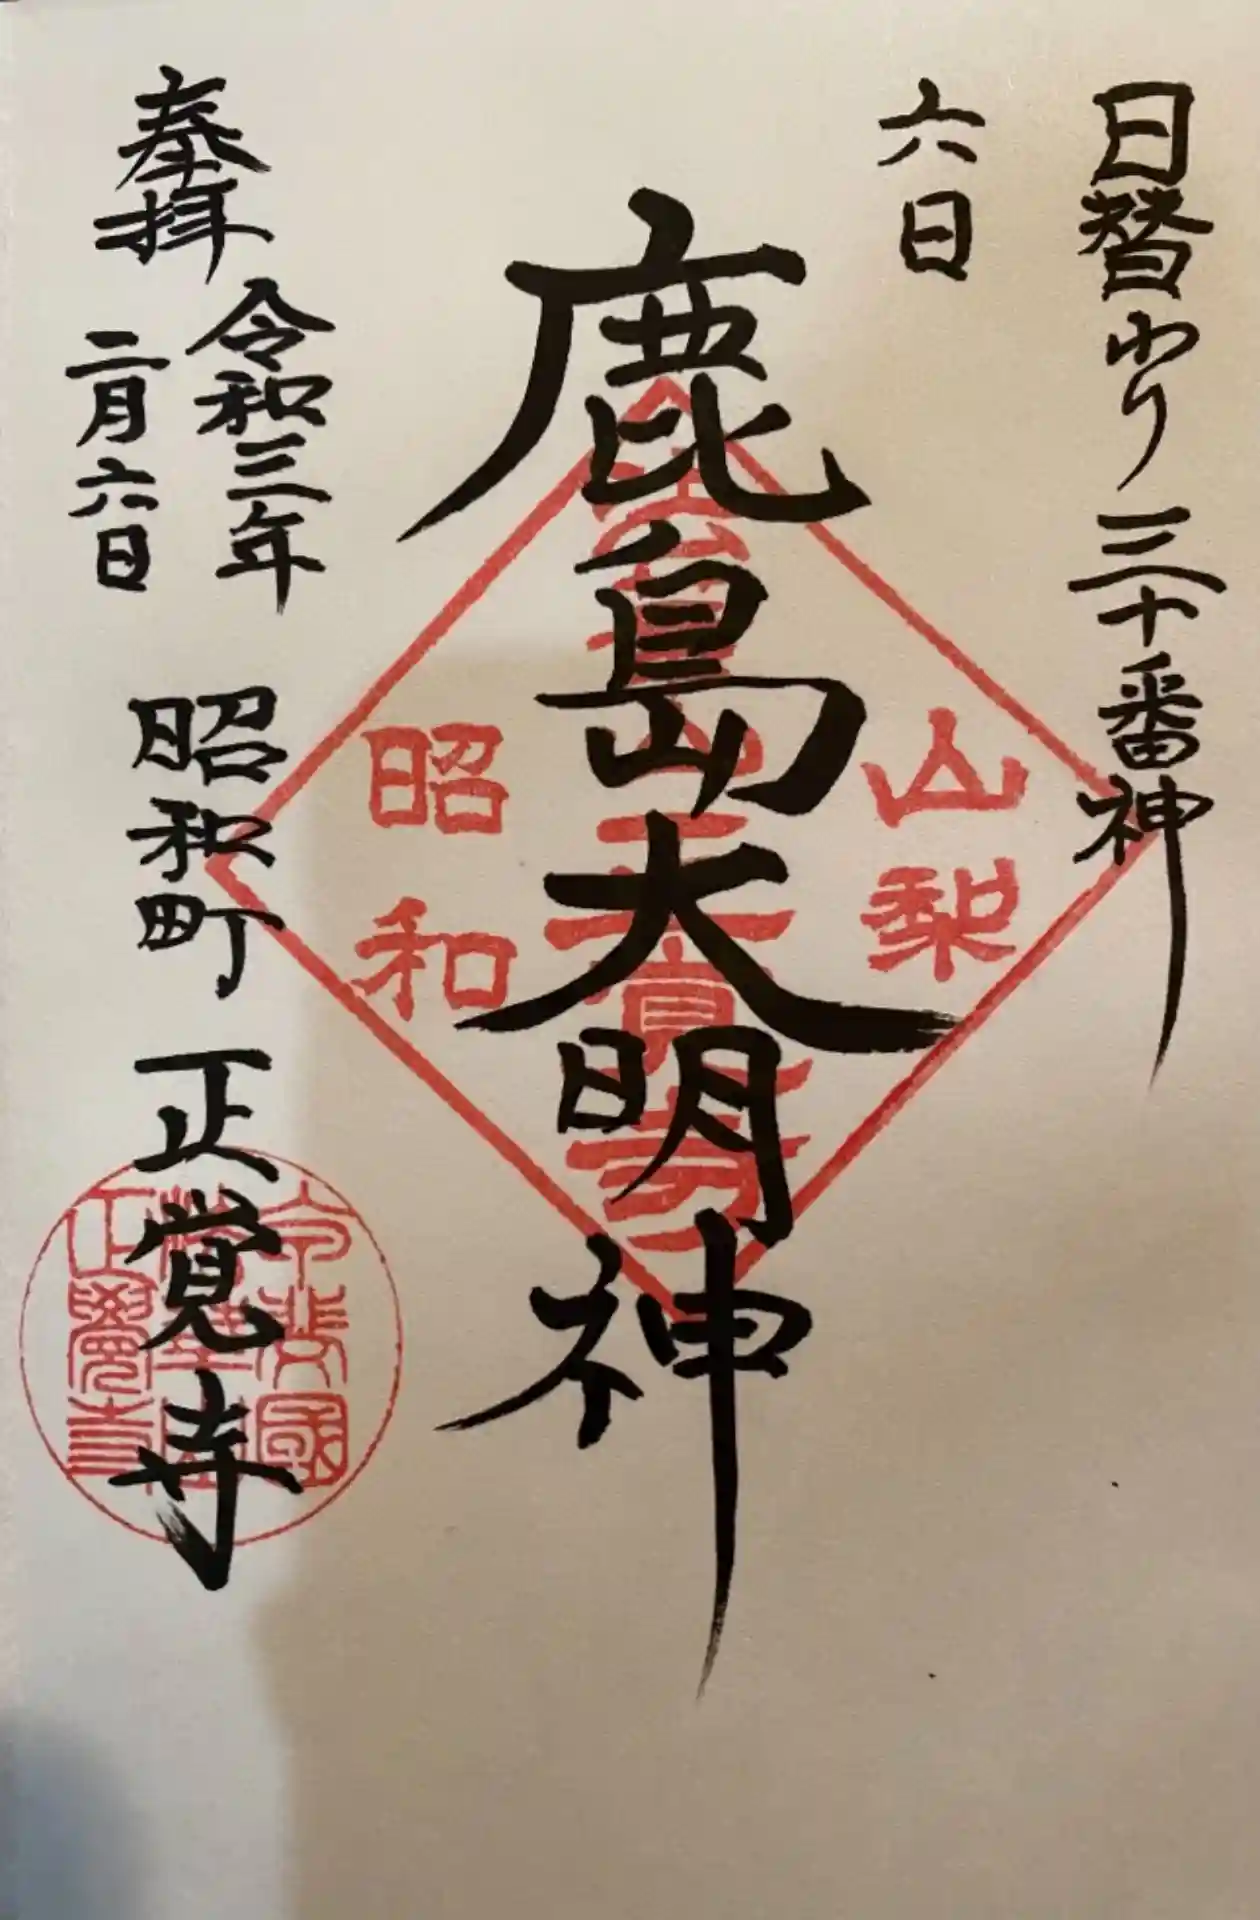 日替わり三十番神
六日
鹿島大明神
山梨
昭和
奉拝
令和三年
二月六日
昭和町 正覚寺